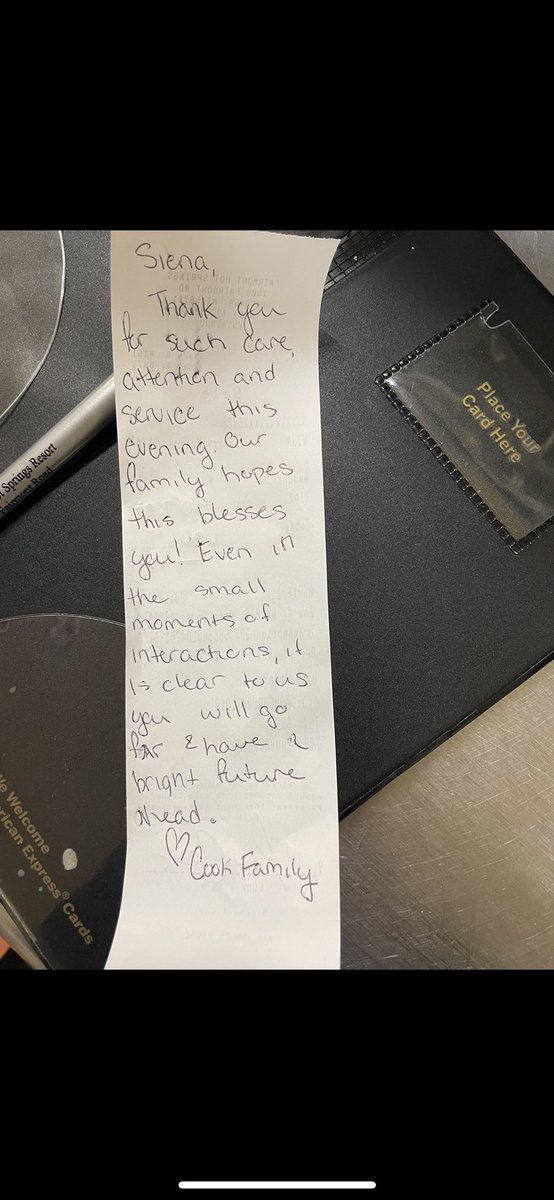 Siena,
Thank you
for such care,
attention and
service this
evening. Our
family hopes
this blesses
you! Even in
the small
moments of
interactions, it
is clear to us
you will go
far & have a
bright future
ahead.
♡ Cook Family
Place Your
Card Here
Springs Resort
Fairmont Road
We Welcome
American Express® Cards
FAIRMONT HOT SPRINGS
1500 FAIRMONT RD